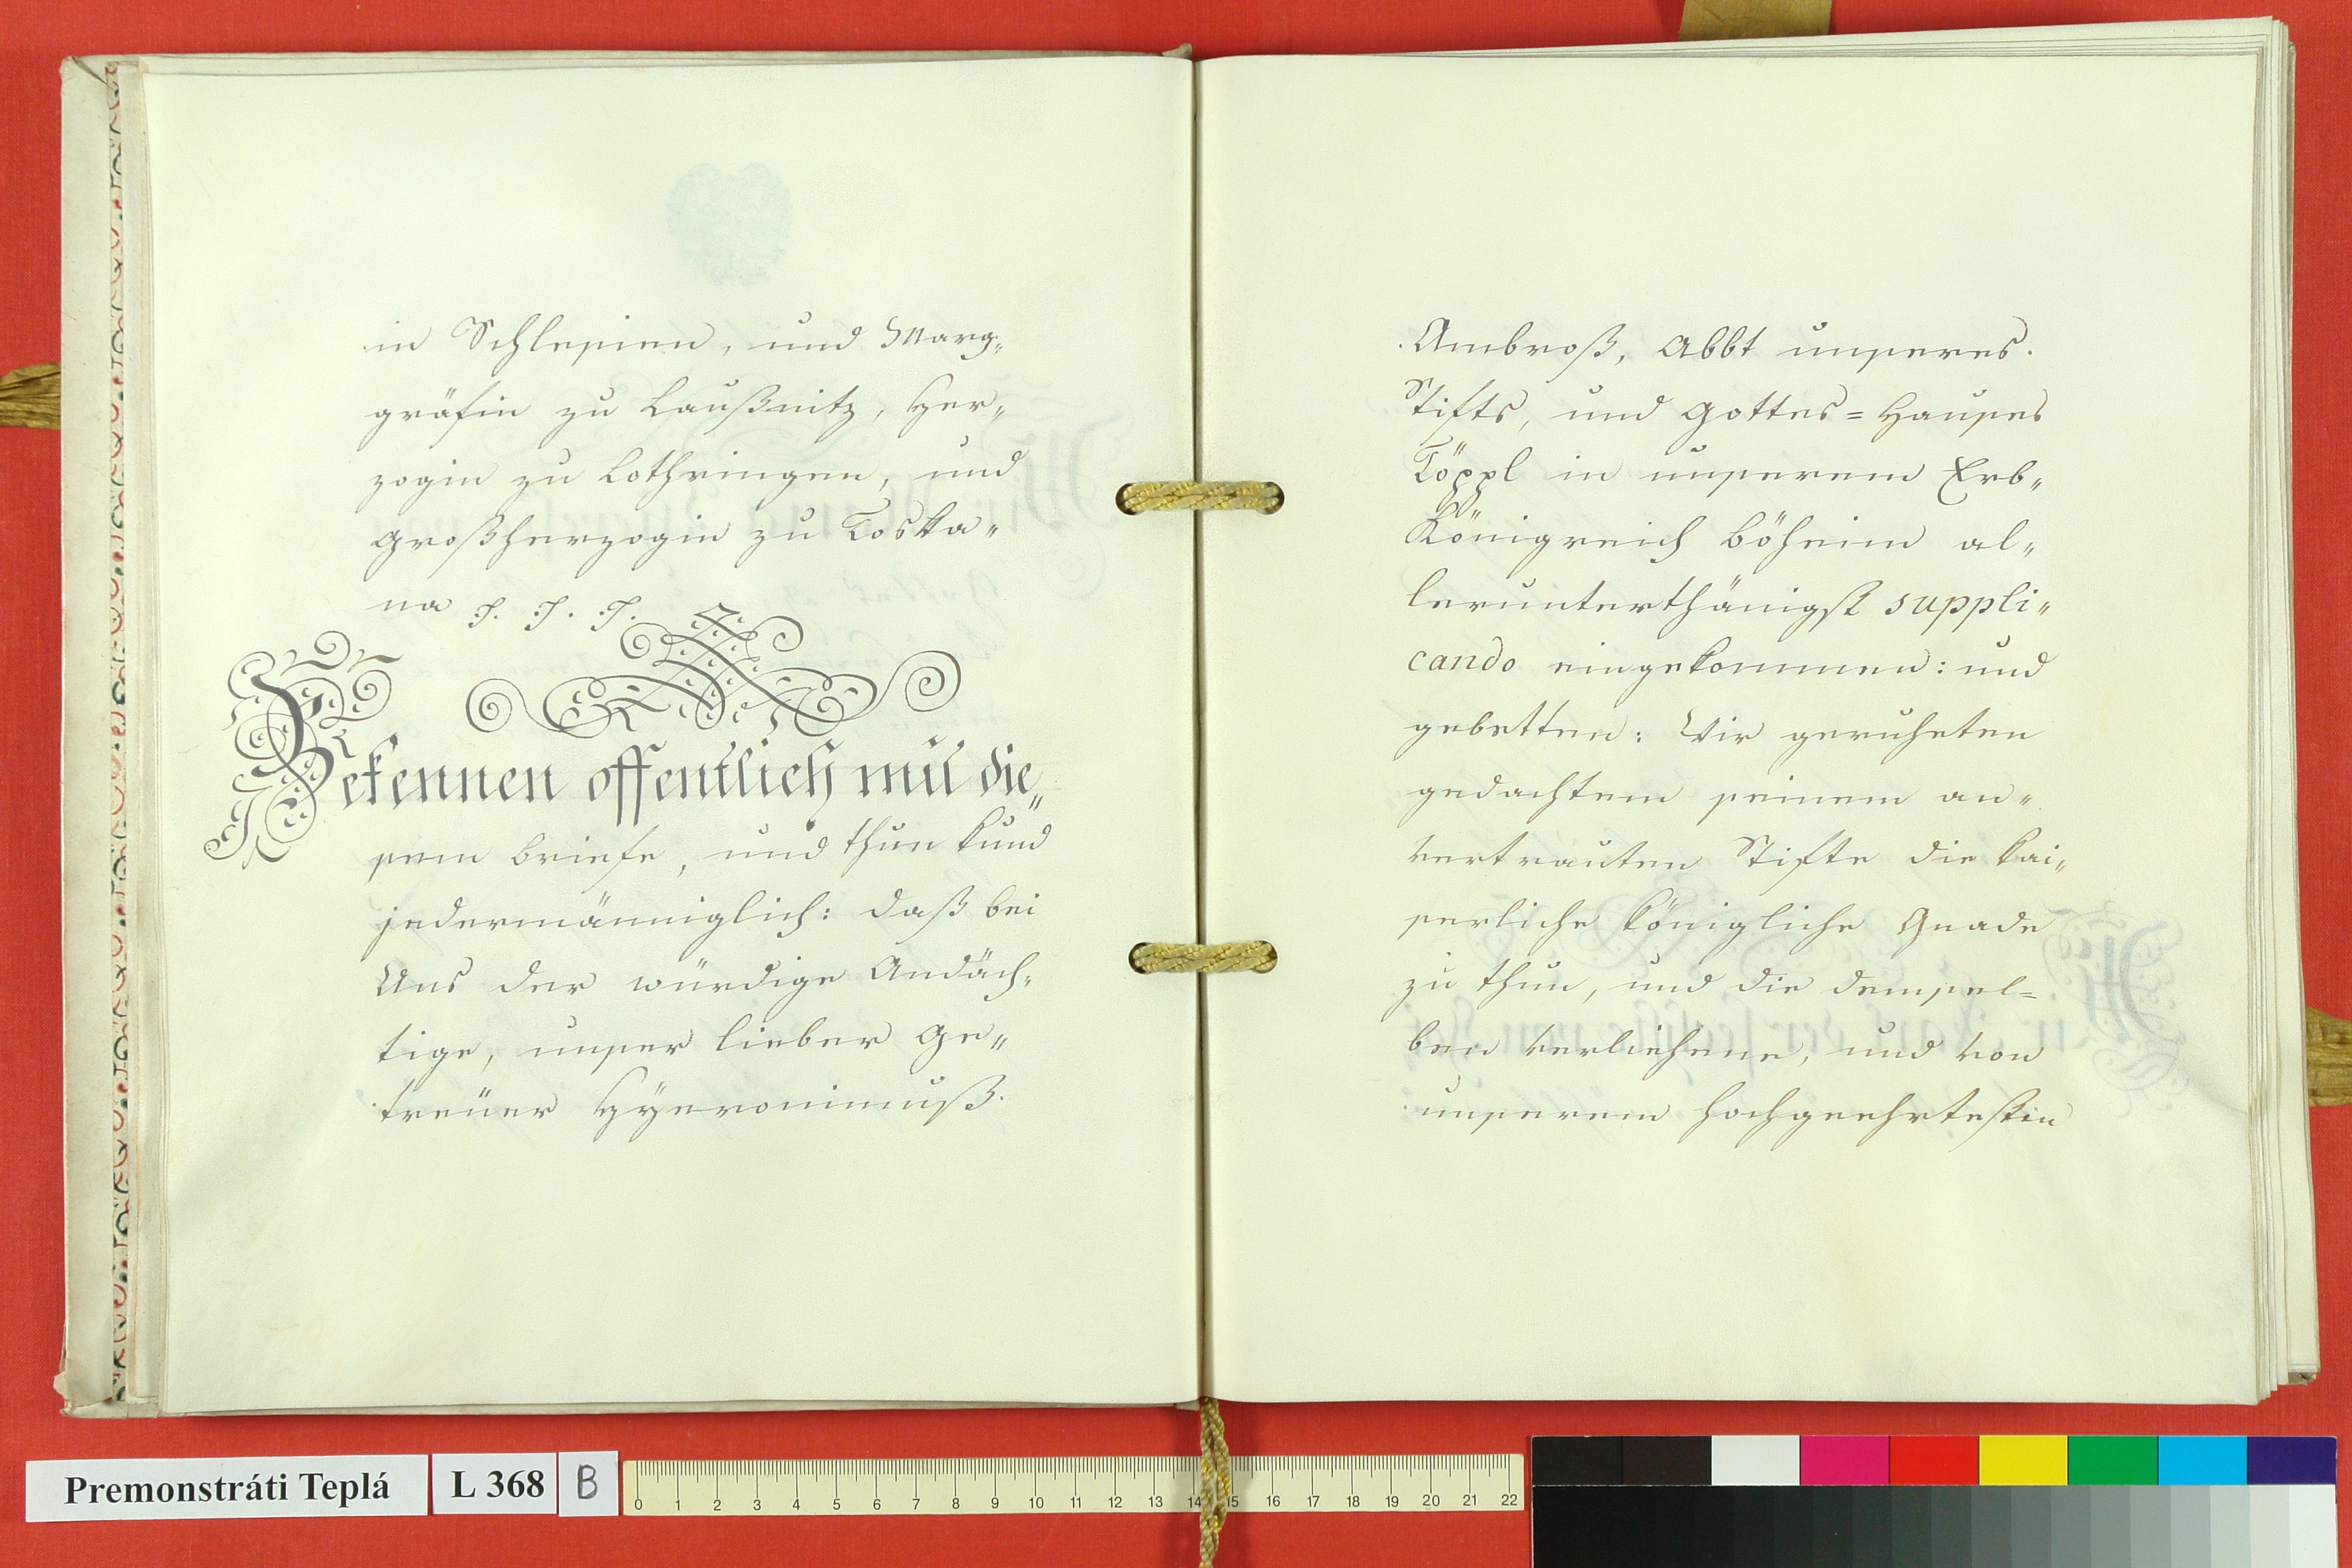 in Schlesien, und Marg„
gräfin zu Laußnitz, Her„
zogin zu Lothringen, und
Großherzogin zu Toska„
na &. &. &.
Bekennen offentlich mit die„
sem Briefe, und thun kund
jedermänniglich: daß bei
Uns der würdige Andäch„
tige, unser lieber Ge„
treüer Hÿeronimuß
Ambroß, Abbt unseres
Stifts, und Gottes=Hauses
Töppl in unserem Erb„
Königreich Böheim al„
lerunterthänigst suppli„
cando eingekommen: und
gebetten: Wir geruheten
gedachtem seinem an„
vertrauten Stifte die kai„
serliche königliche Gnade
zu thun, und die demsel=
ben verliehene, und von
unserem hochgeehrtesten
Premonstráti Teplá L 368 B
0 1 2 3 4 5 6 7 8 9 10 11 12 13 14 15 16 17 18 19 20 21 22